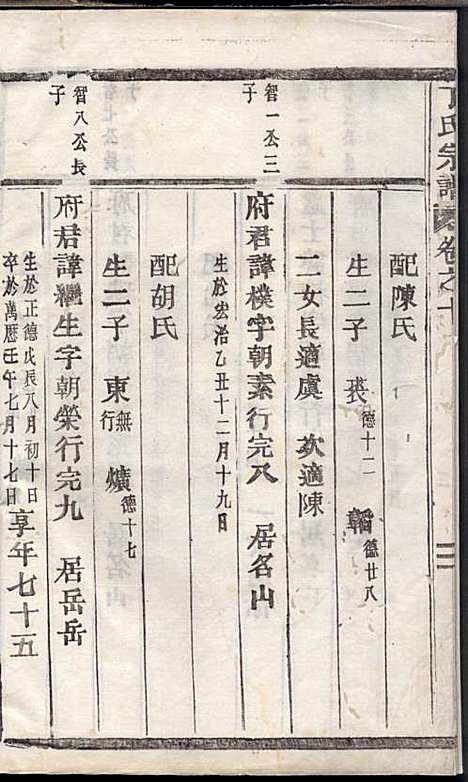 丁氏宗譜 卷之十
配陳氏
生二子 裘 德十二 韜 德廿八
二女長適虞 次適陳
智一公三子
府君諱樸字朝素行完八 居名山
生於宏治乙丑十二月十九日
配胡氏
生二子 東 無行 爌 德十七
智八公長子
府君諱巒生字朝榮行完九 居岳岳
生於正德戊辰八月初十日
卒於萬曆壬午七月十七日享年七十五